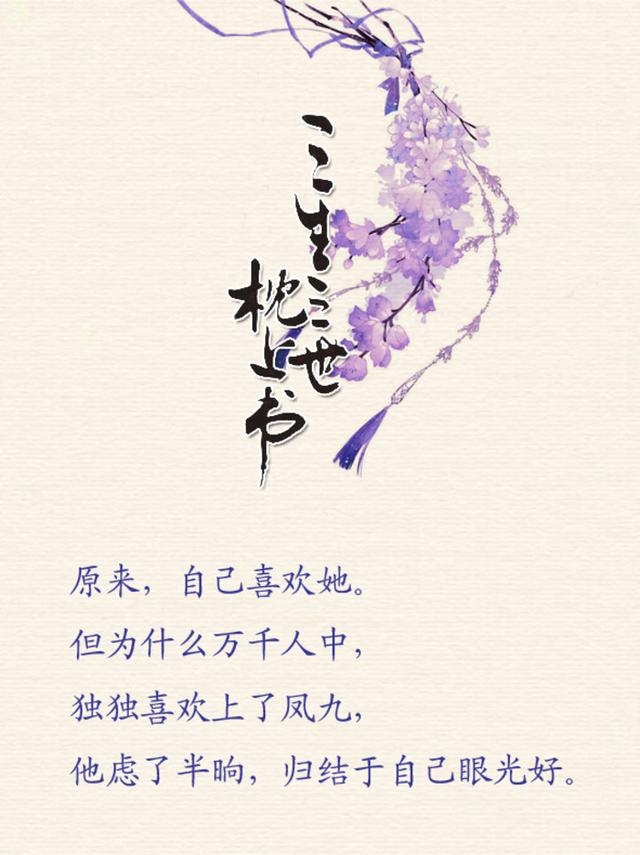 三生三世
枕上书
原来，自己喜欢她。
但为什么万千人中，
独独喜欢上了凤九，
他虑了半晌，归结于自己眼光好。